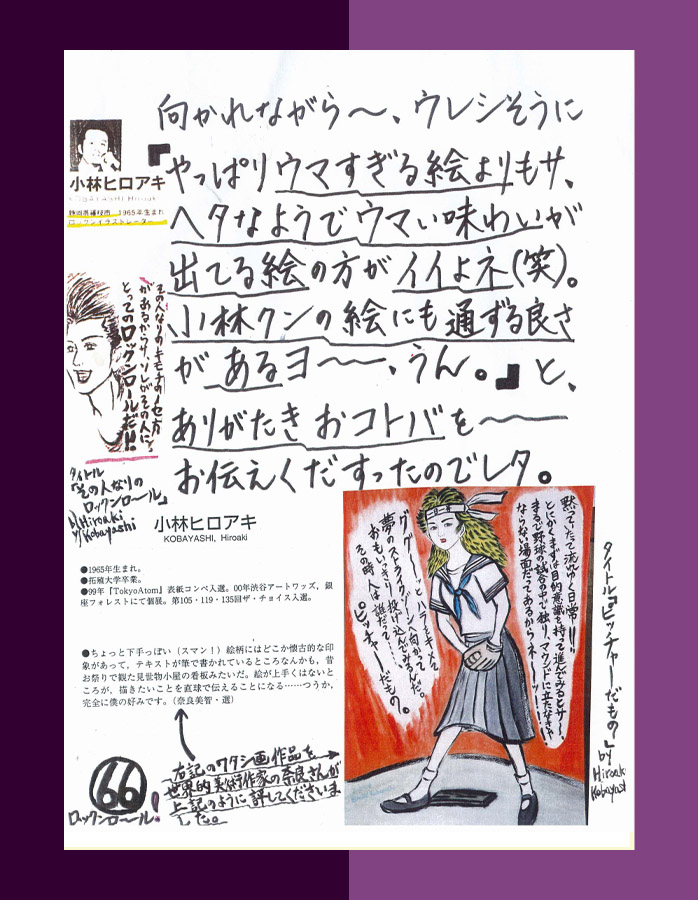 向かれながら〜、ウレシそうに
『やっぱりウマすぎる絵よりもサ、
ヘタなようでウマい味わいが
出てる絵の方がイイよネ(笑)。
小林クンの絵にも通ずる良さ
があるヨ〜〜、うん。』と、
ありがたきおコトバを〜〜
お伝えくだすったのでしタ。
小林ヒロアキ
KOBAYASHI Hiroaki
静岡県藤枝市 1965年生まれ
ロックンイラストレーター
その人なりのキモチのノセ方
があるからサ、ソレがその人に
とってのロックンロールだ!!
タイトル
『その人なりの
ロックンロール』
by Hiroaki
Kobayashi
小林ヒロアキ
KOBAYASHI, Hiroaki
●1965年生まれ。
●拓殖大学卒業。
●99年『TokyoAtom』表紙コンペ入選。00年渋谷アートワッズ，銀
座フォレストにて個展。第105・119・135回ザ・チョイス入選。
●ちょっと下手っぽい（スマン！）絵柄にはどこか懐古的な印
象があって，テキストが筆で書かれているところなんかも，昔
お祭りで観た見世物小屋の看板みたいだ。絵が上手くはないと
ころが，描きたいことを直球で伝えることになる……つうか，
完全に僕の好みです。（奈良美智・選）
右記のワタシ画作品を
世界的美術作家の奈良さんが
上記のように評してくださいま
した。
66
ロックンロ〜ル!
黙っていたって流れゆく日常!!
とにかくまずは目的意識を持って進んでみるとサー、
まるで野球の試合の中で独り、マウンドに立たなきゃ
ならない場面だってあるからネーッ!!
ググーッとバッターキャッて
夢のストライクゾーンへ向かって
おもいっきり投げ込んでみるんだ。
その時、人は誰だって…
ピッチャーだもの。
タイトル『ピッチャーだもの』
by
Hiroaki
Kobayashi